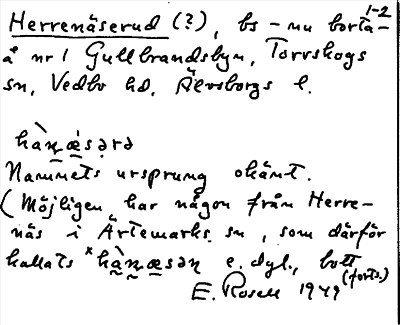 1-2
Herrenäserud (?), bs - nu borta -
å nr 1 Gullbrandsbyn, Torrskogs
sn, Vedbo hd, Älvsborgs l.
hæ̀ɳæ̀sərə
Namnets ursprung okänt.
(Möjligen har någon från Herre-
näs i Ärtemarks sn, som därför
kallats *hæ̀ɳæsən e. dyl., bott
(forts.)
E. Rosell 1949